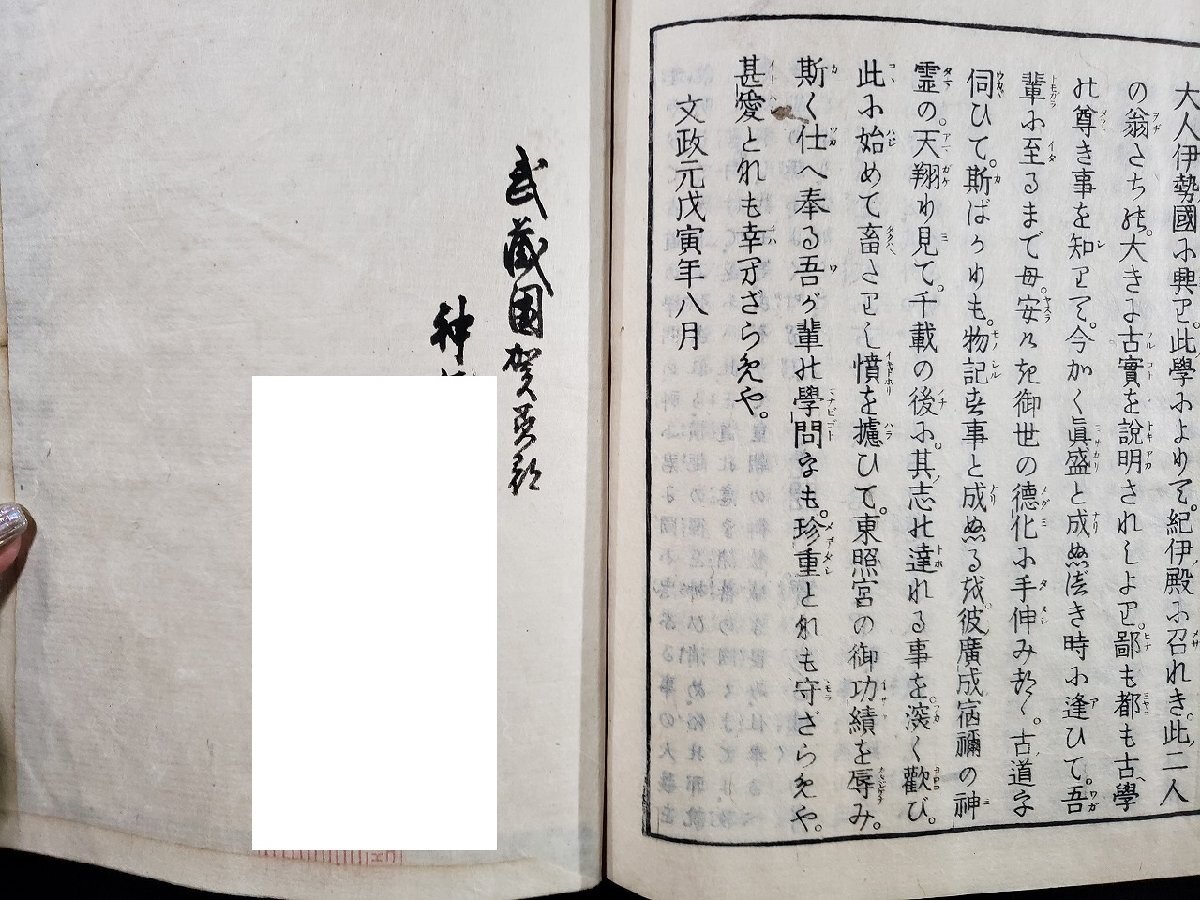 大人伊勢國尓興里。此學尓より天。紀伊殿尓召れき。此二人
の翁たち能。大きに古實を説明されしより。鄙も都も古學
能尊き事を知りて。今かく眞盛と成ぬ流時尓逢ひて。吾
輩尓至るまで毋。安らけ起御世の德化尓手伸み
伺ひて。斯ばかりも。物記須事と成ぬる越。彼廣成宿禰の神
靈の。天翔り見て。千載の後尓。其志能達れる事を。深く歡び。
此尓始めて畜たりし憤を攄ひて。東照宮の御功績を辱み。
斯く仕へ奉る吾が輩能學問字も。珍重とれも守ざらめや。
甚愛とれも幸里ざらめや。
文政元戊寅年八月
武藏國賀美郡
神